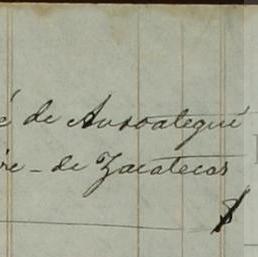 é de Ansoategui
re - de Zacatecas